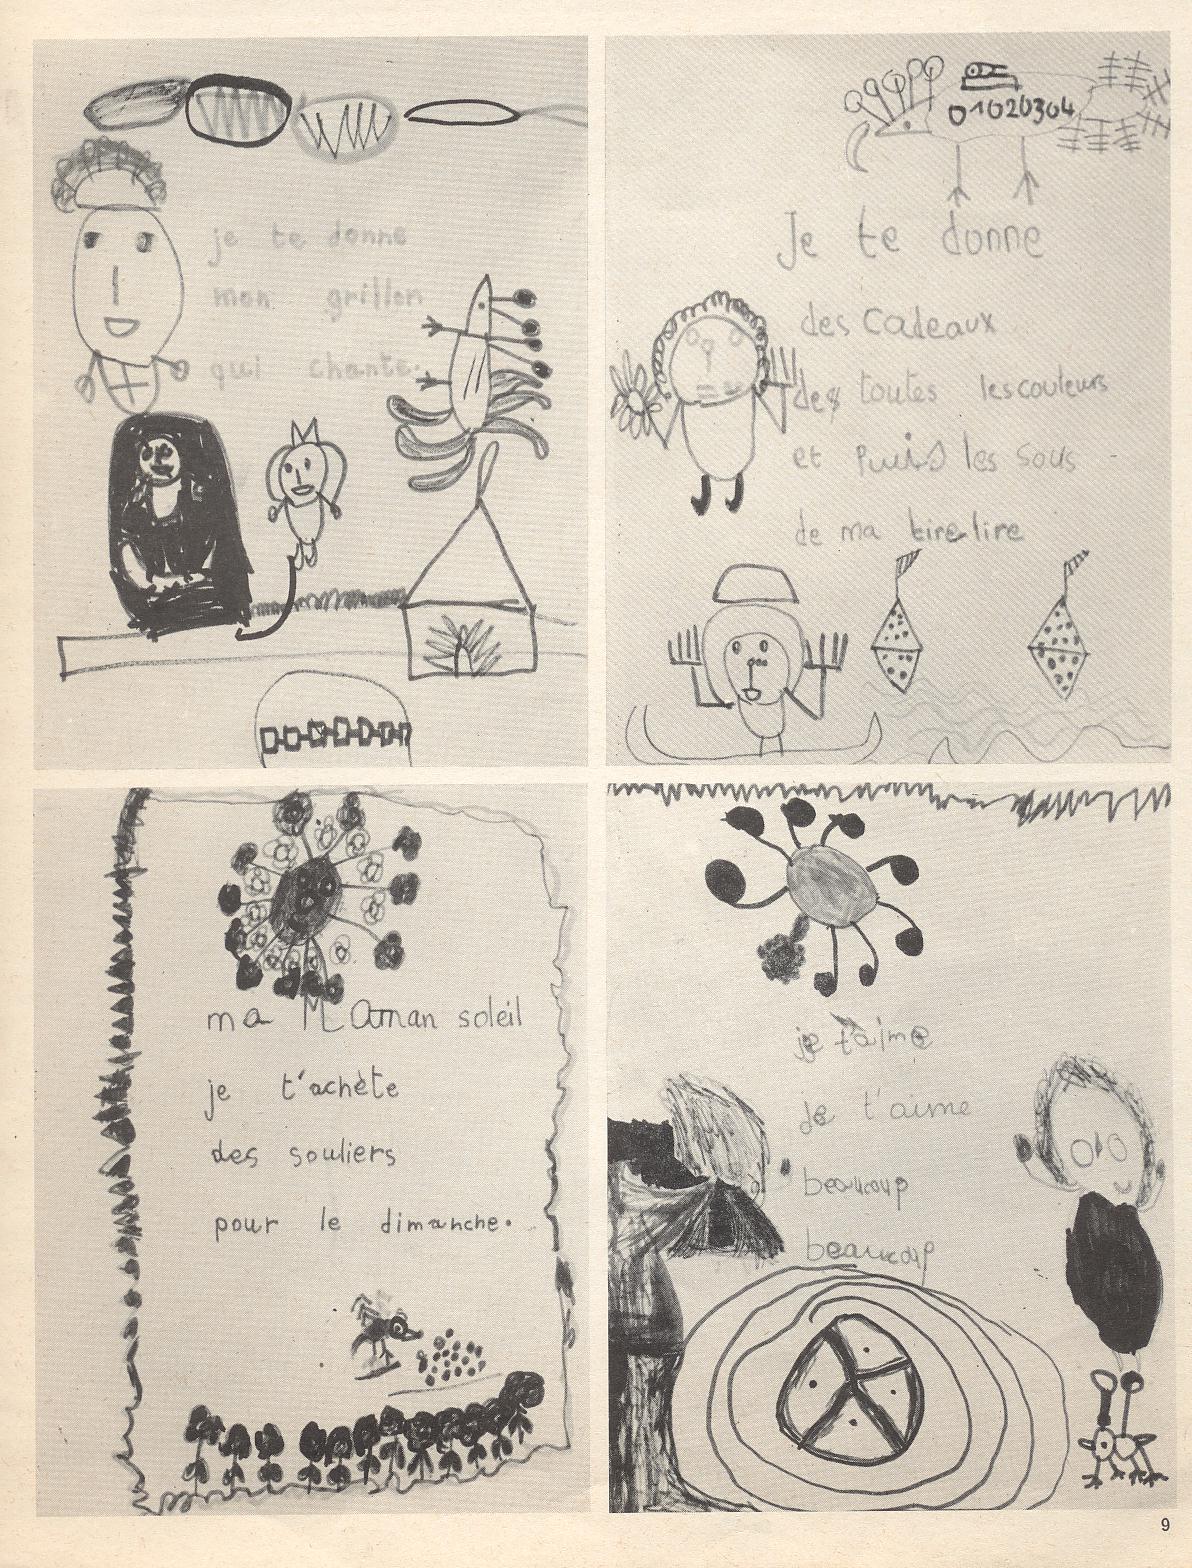 je te donne
mon grillon
qui chante.
01020304
Je te donne
des cadeaux
des toutes les couleurs
et puis les sous
de ma tire lire
ma Maman soleil
je t'achète
des souliers
pour le dimanche.
je t'aime
je t'aime
beaucoup
beaucoup
9